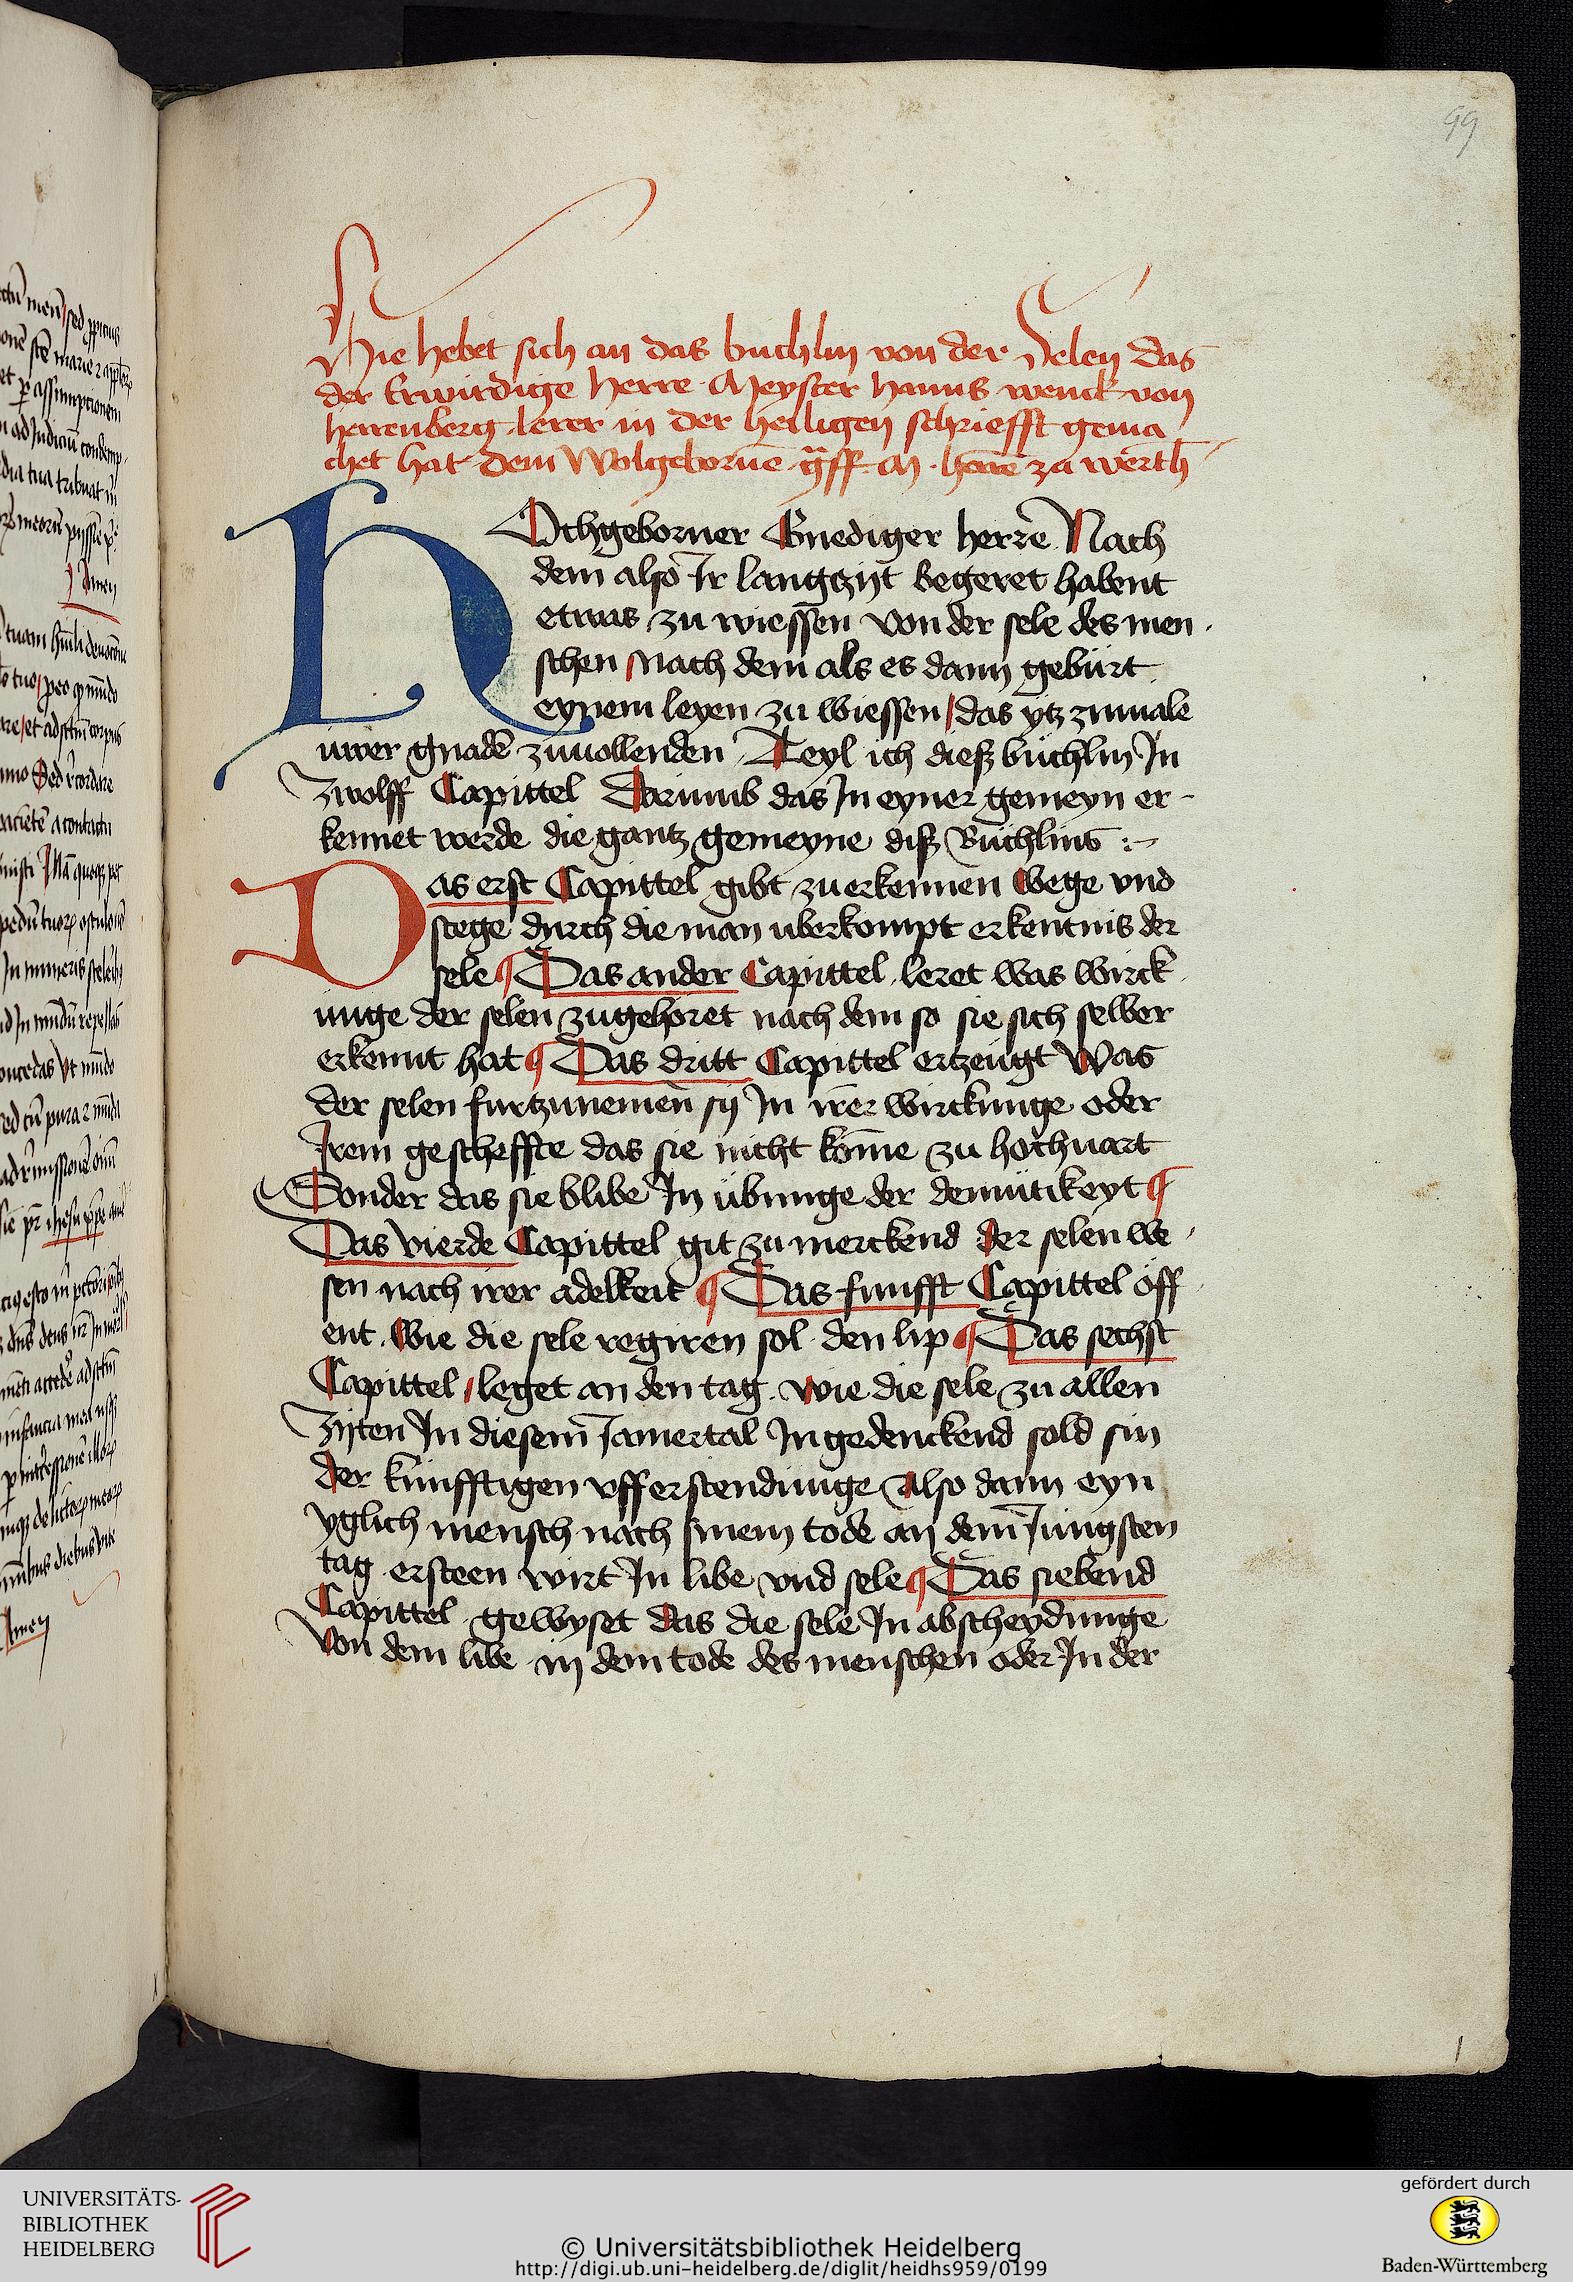 99
Hie hebet sich an das buchlin von der Selen das
der Erwirdige herre Meyster hanns wenck von
herenberg lerer in der heiligen schriefft gema
chet hat dem Wolgebornē gff M herre zu werth
HOchgeborner Gnediger herre Nach
dem also Ir langzijt begeret habent
etwas zu wiessen von der sele des men
schen nach dem als es dann gebürt
eynem leyen zu wiessen / das ytz zumale
uwer gnadē zuuollenden Teyl ich diesz büchlin In
zwolff Capittel Darumb das In eyner gemeyn er-
kennet werde die gantz gemeyne disz Büchlins :~
Das erst Capittel gibt zu erkennen Wege vnd
stege durch die man uberkompt erkentnis der
sele ¶ Das ander Capittel leret was wirck
unge der selen zugehoret nach dem so sie sich selber
erkennt hat ¶ Das dritt Capittel ertzeugt Was
der selen furtzunemen sij In irer wirckunge oder
Irem gescheffte das sie nicht kōme zu hochuart
Sonder das sie blibe In übunge der demütikeyt ¶
Das vierde Capittel git zu merckend der selen we
sen nach irer adelkeit ¶ Das funfft Capittel öff
ent Wie die sele regiren sol den lip ¶ Das sechst
Capittel / leget an den tag wie die sele zu allen
zijten In diesem Iamertal Ingedenckend sold sin
der künfftigen vfferstendunge Also dann eyn
yglich mensch nach sinem tode an dem Iungsten
tag ersteen wirt In libe vnd sele ¶ Das siebend
Capittel gewyset das die sele In abscheydunge
von dem libe in dem tode des menschen oder In der
1
UNIVERSITÄTS-
BIBLIOTHEK
HEIDELBERG
© Universitätsbibliothek Heidelberg
http://digi.ub.uni-heidelberg.de/diglit/heidhs959/0199
gefördert durch
Baden-Württemberg